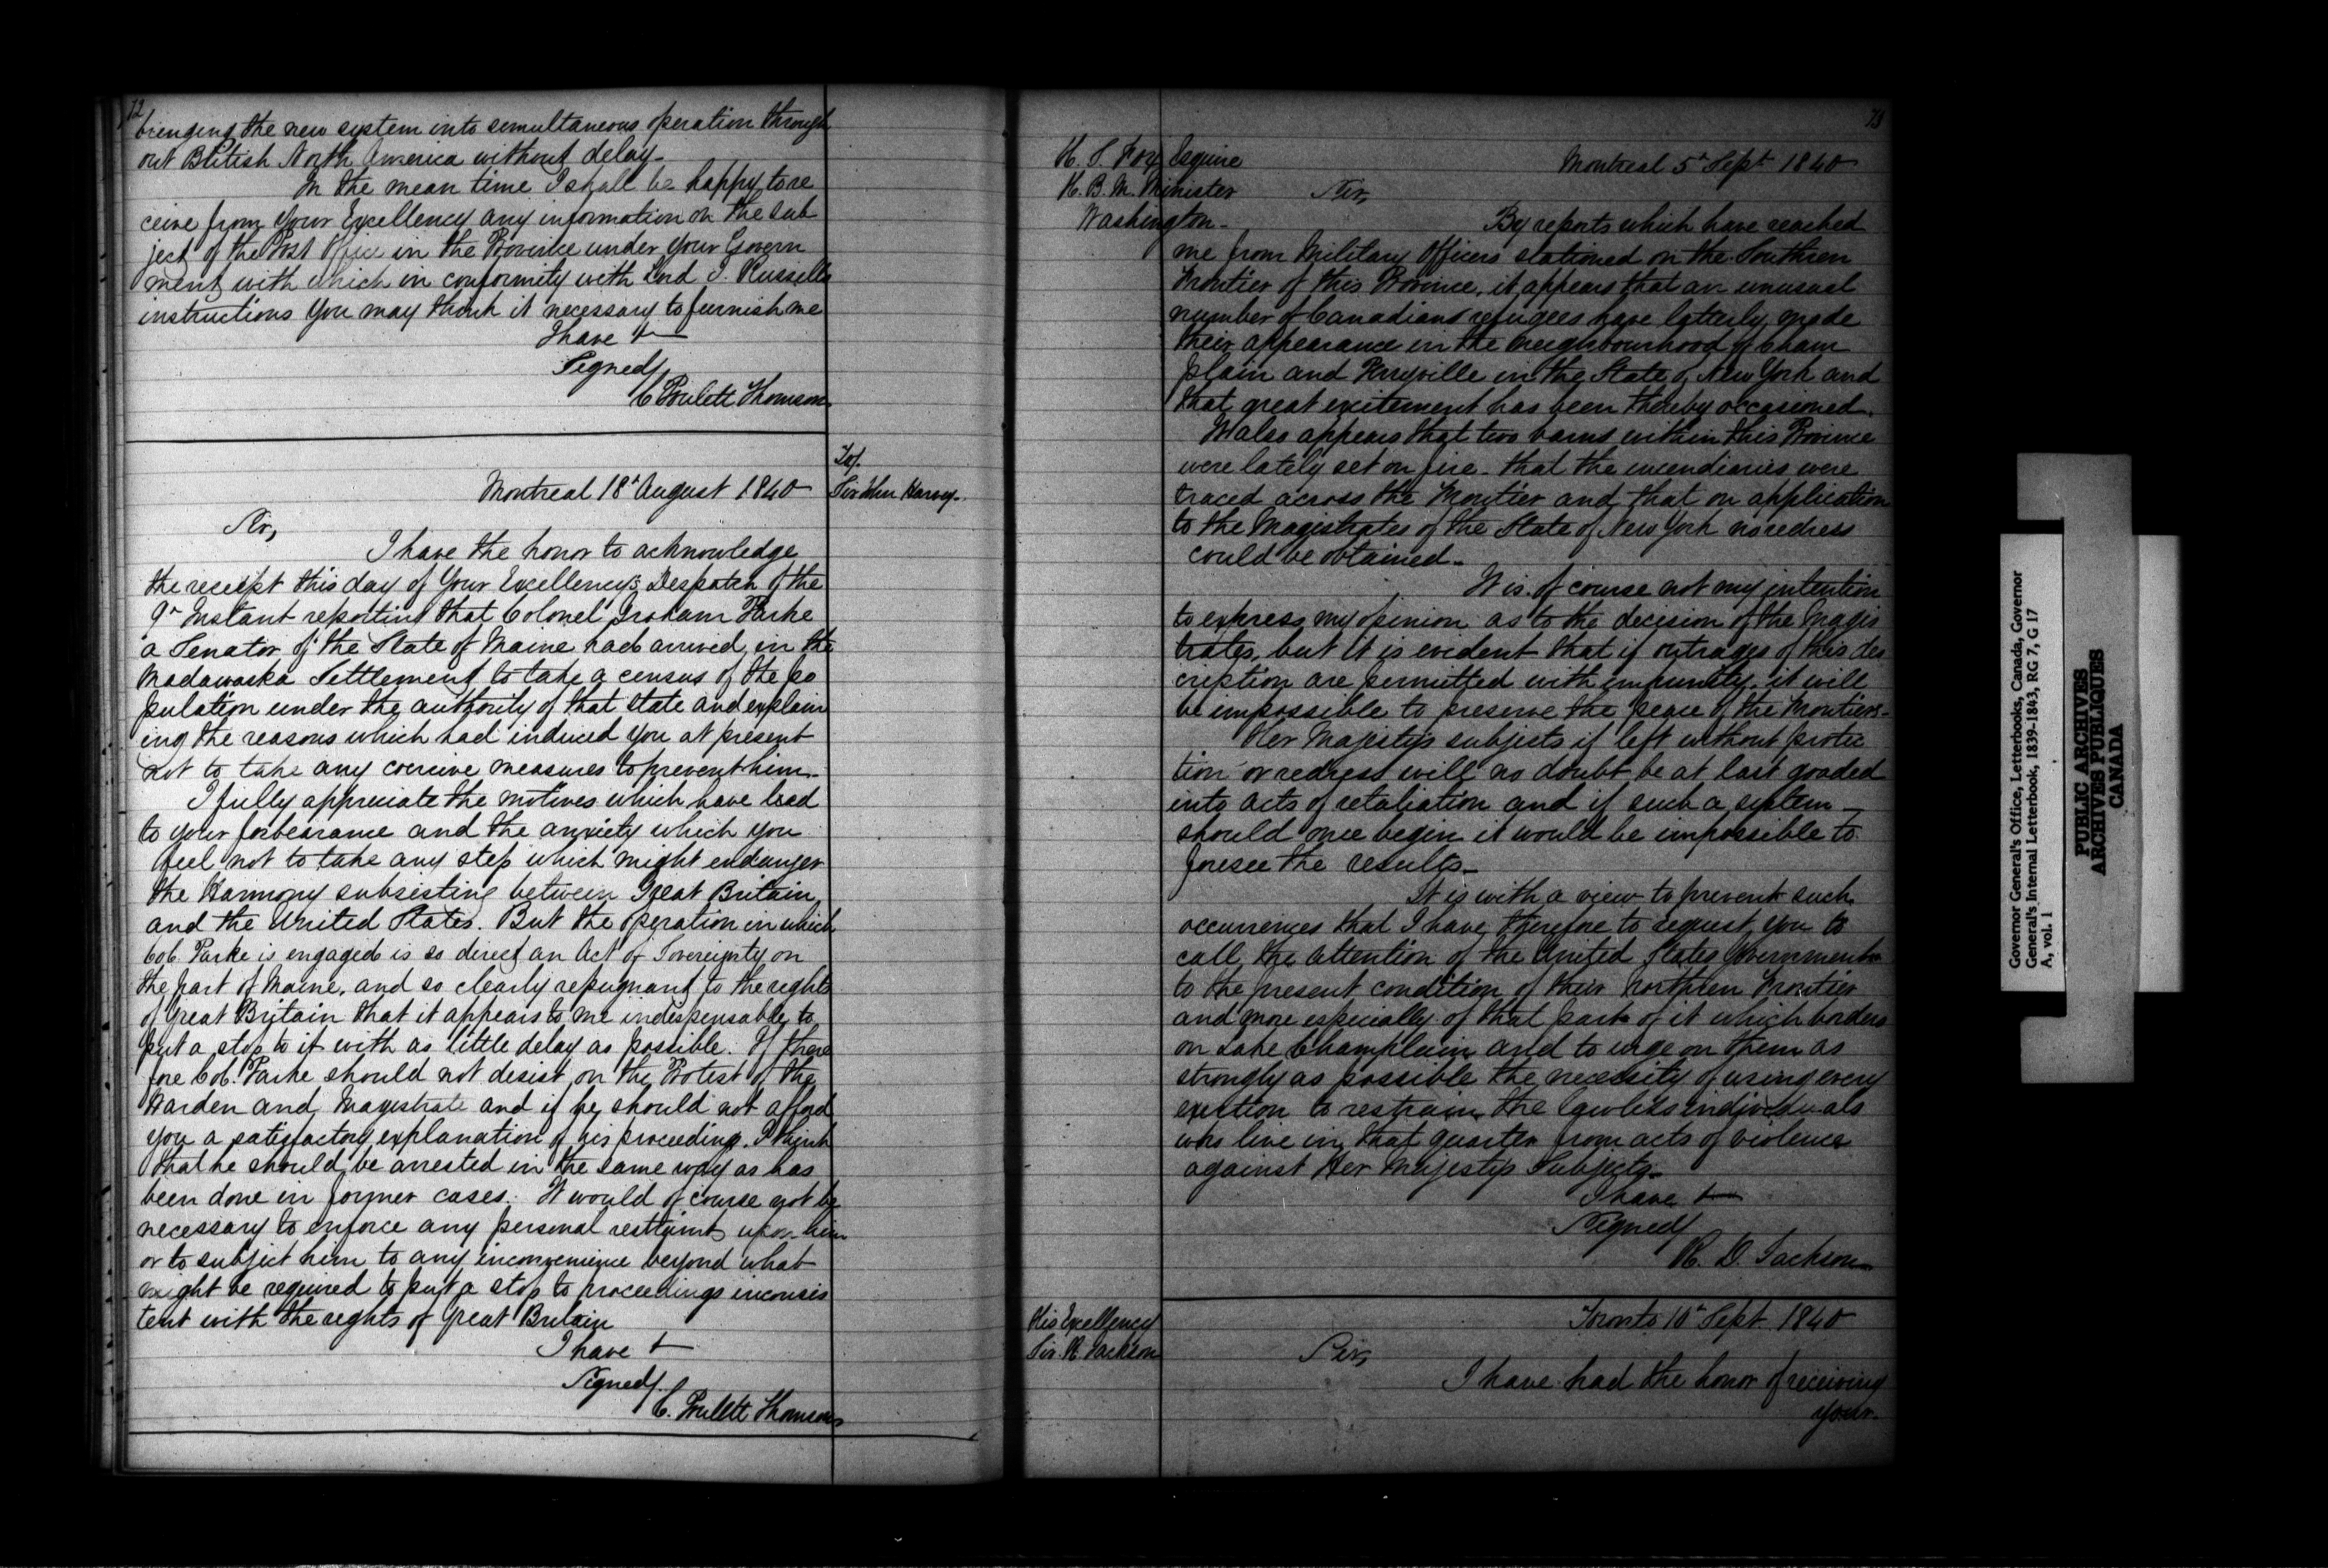 72
bringing the new system into simultaneous operation through
out British North America without delay.
In the mean time I shall be happy to re
ceive from your Excellency any information on the sub
ject of the Post Office in the Province under your Govern
ment with which in conformity with Lord J. Russells
instructions you may think it necessary to furnish me
I have &
Signed/
C Poulett Thomson
To/
Sir John Harvey.
Montreal 18th August 1840
Sir,
I have the honor to acknowledge
the receipt this day of Your Excellency's Despatch of the
9th Instant reporting that Colonel Graham Parke
a Senator of the State of Maine had arrived in the
Madawaska Settlement to take a census of the po
pulation under the authority of that state and explain
ing the reasons which had induced you at present
not to take any coercive measures to prevent him.
I fully appreciate the motives which have lead
to your forbearance and the anxiety which you
feel not to take any step which might endanger
the Harmony subsisting between Great Britain
and the United States. But the operation in which
Col. Parke is engaged is so direct an Act of Sovereignty on
the part of Maine, and so clearly repugnant to the rights
of Great Britain that it appears to me indespensable to
put a stop to it with as little delay as possible. If there
fore Col. Parke should not desist on the Protest of the
Warden and Magistrate and if he should not afford
you a satisfactory explanation of his proceeding. I think
that he should be arrested in the same way as has
been done in former cases. It would of course not be
necessary to enforce any personal restraint upon him
or to subject him to any inconvenience beyond what
might be required to put a stop to proceedings inconsis
tent with the rights of Great Britain
I have &
Signed/
C. Poulett Thomson
73
H. S. Fox Esquire
H. B. M. Minister
Washington.
Montreal 5th Sept 1840
Sir,
By reports which have reached
me from Military Officers stationed on the Southren
Frontier of this Province, it appears that an unusual
number of Canadians refugees have latterly made
their appearance in the neighbourhood of Cham
plain and Perryville in the State of New York and
that great excitement has been thereby occasioned.
It also appears that two barns within this Province
were lately set on fire - that the incendiaries were
traced across the Frontier and that on application
to the Magistrates of the State of New York no redress
could be obtained.
It is of course not my intention
to express my opinion as to the decision of the Magis
trates, but it is evident that if outrages of this des
cription are permitted with impunity, it will
be impossible to preserve the peace of the Frontiers.
Her Majesty's subjects if left without protec
tion or redress will no doubt be at last goaded
into acts of retaliation and if such a system
should once begin it would be impossible to
foresee the results.
It is with a view to prevent such
occurrences that I have therefore to request you to
call the attention of the United States Government
to the present condition of their northren Frontier
and more especially of that part of it which borders
on Lake Champlain and to urge on them as
strongly as possible the necessity of using every
exertion to restrain the lawless individuals
who live in that quarter from acts of violence
against Her Majesty's Subjects.
I have &
Signed/
R. D. Jackson
His Excellency
Sir R Jackson
Toronto 10th Sept 1840
Sir,
I have had the honor of receiving
your
Governor General's Office, Letterbooks, Canada, Governor
General's Internal Letterbook, 1839-1843, RG 7, G 17
A, vol. 1
PUBLIC ARCHIVES
ARCHIVES PUBLIQUES
CANADA